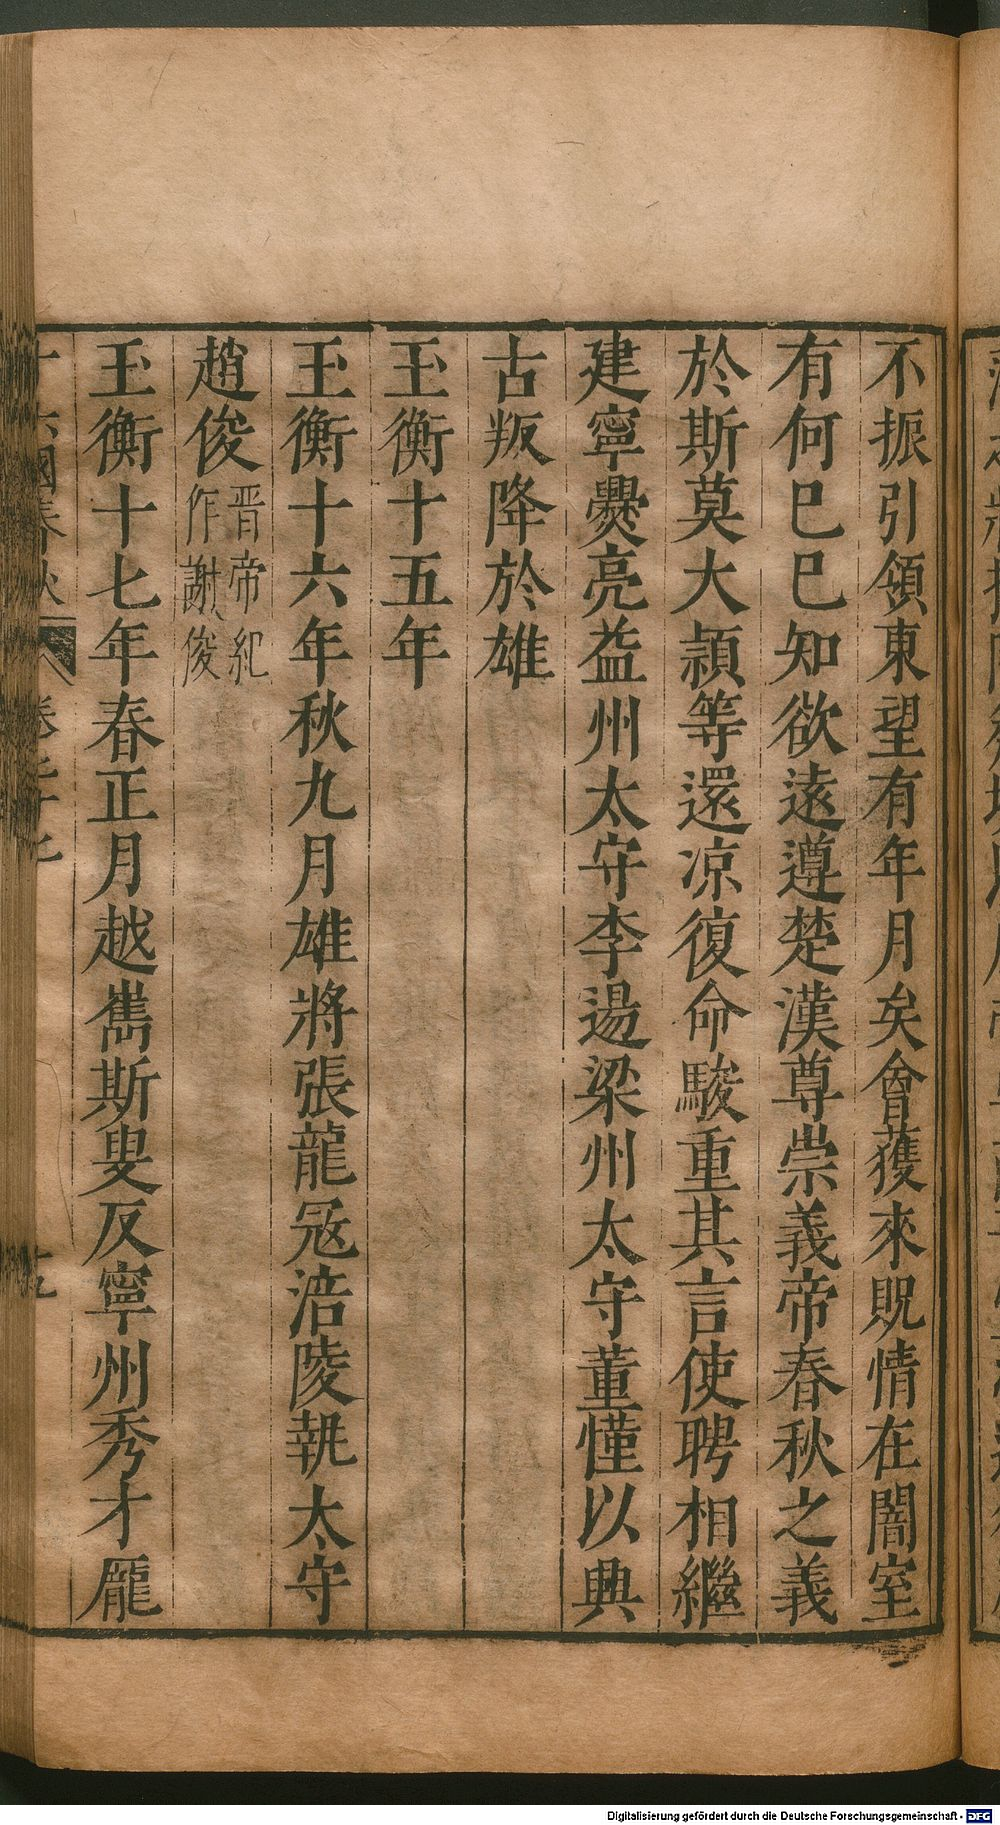 不振引領東望有年月矣會獲來貺情在闇室
有何巳巳知欲遠遵楚漢尊崇義帝春秋之義
於斯莫大頴等還凉復命駿重其言使聘相繼
建寧爨亮益州太守李逷梁州太守董慬以興
古叛降於雄
玉衡十五年
玉衡十六年秋九月雄將張龍冦涪陵執太守
趙俊晋帝紀
作謝俊
玉衡十七年春正月越雟斯叟反寧州秀才龎
國春秋
卷
Digitalisierung gefördert durch die Deutsche Forschungsgemeinschaft - DFG